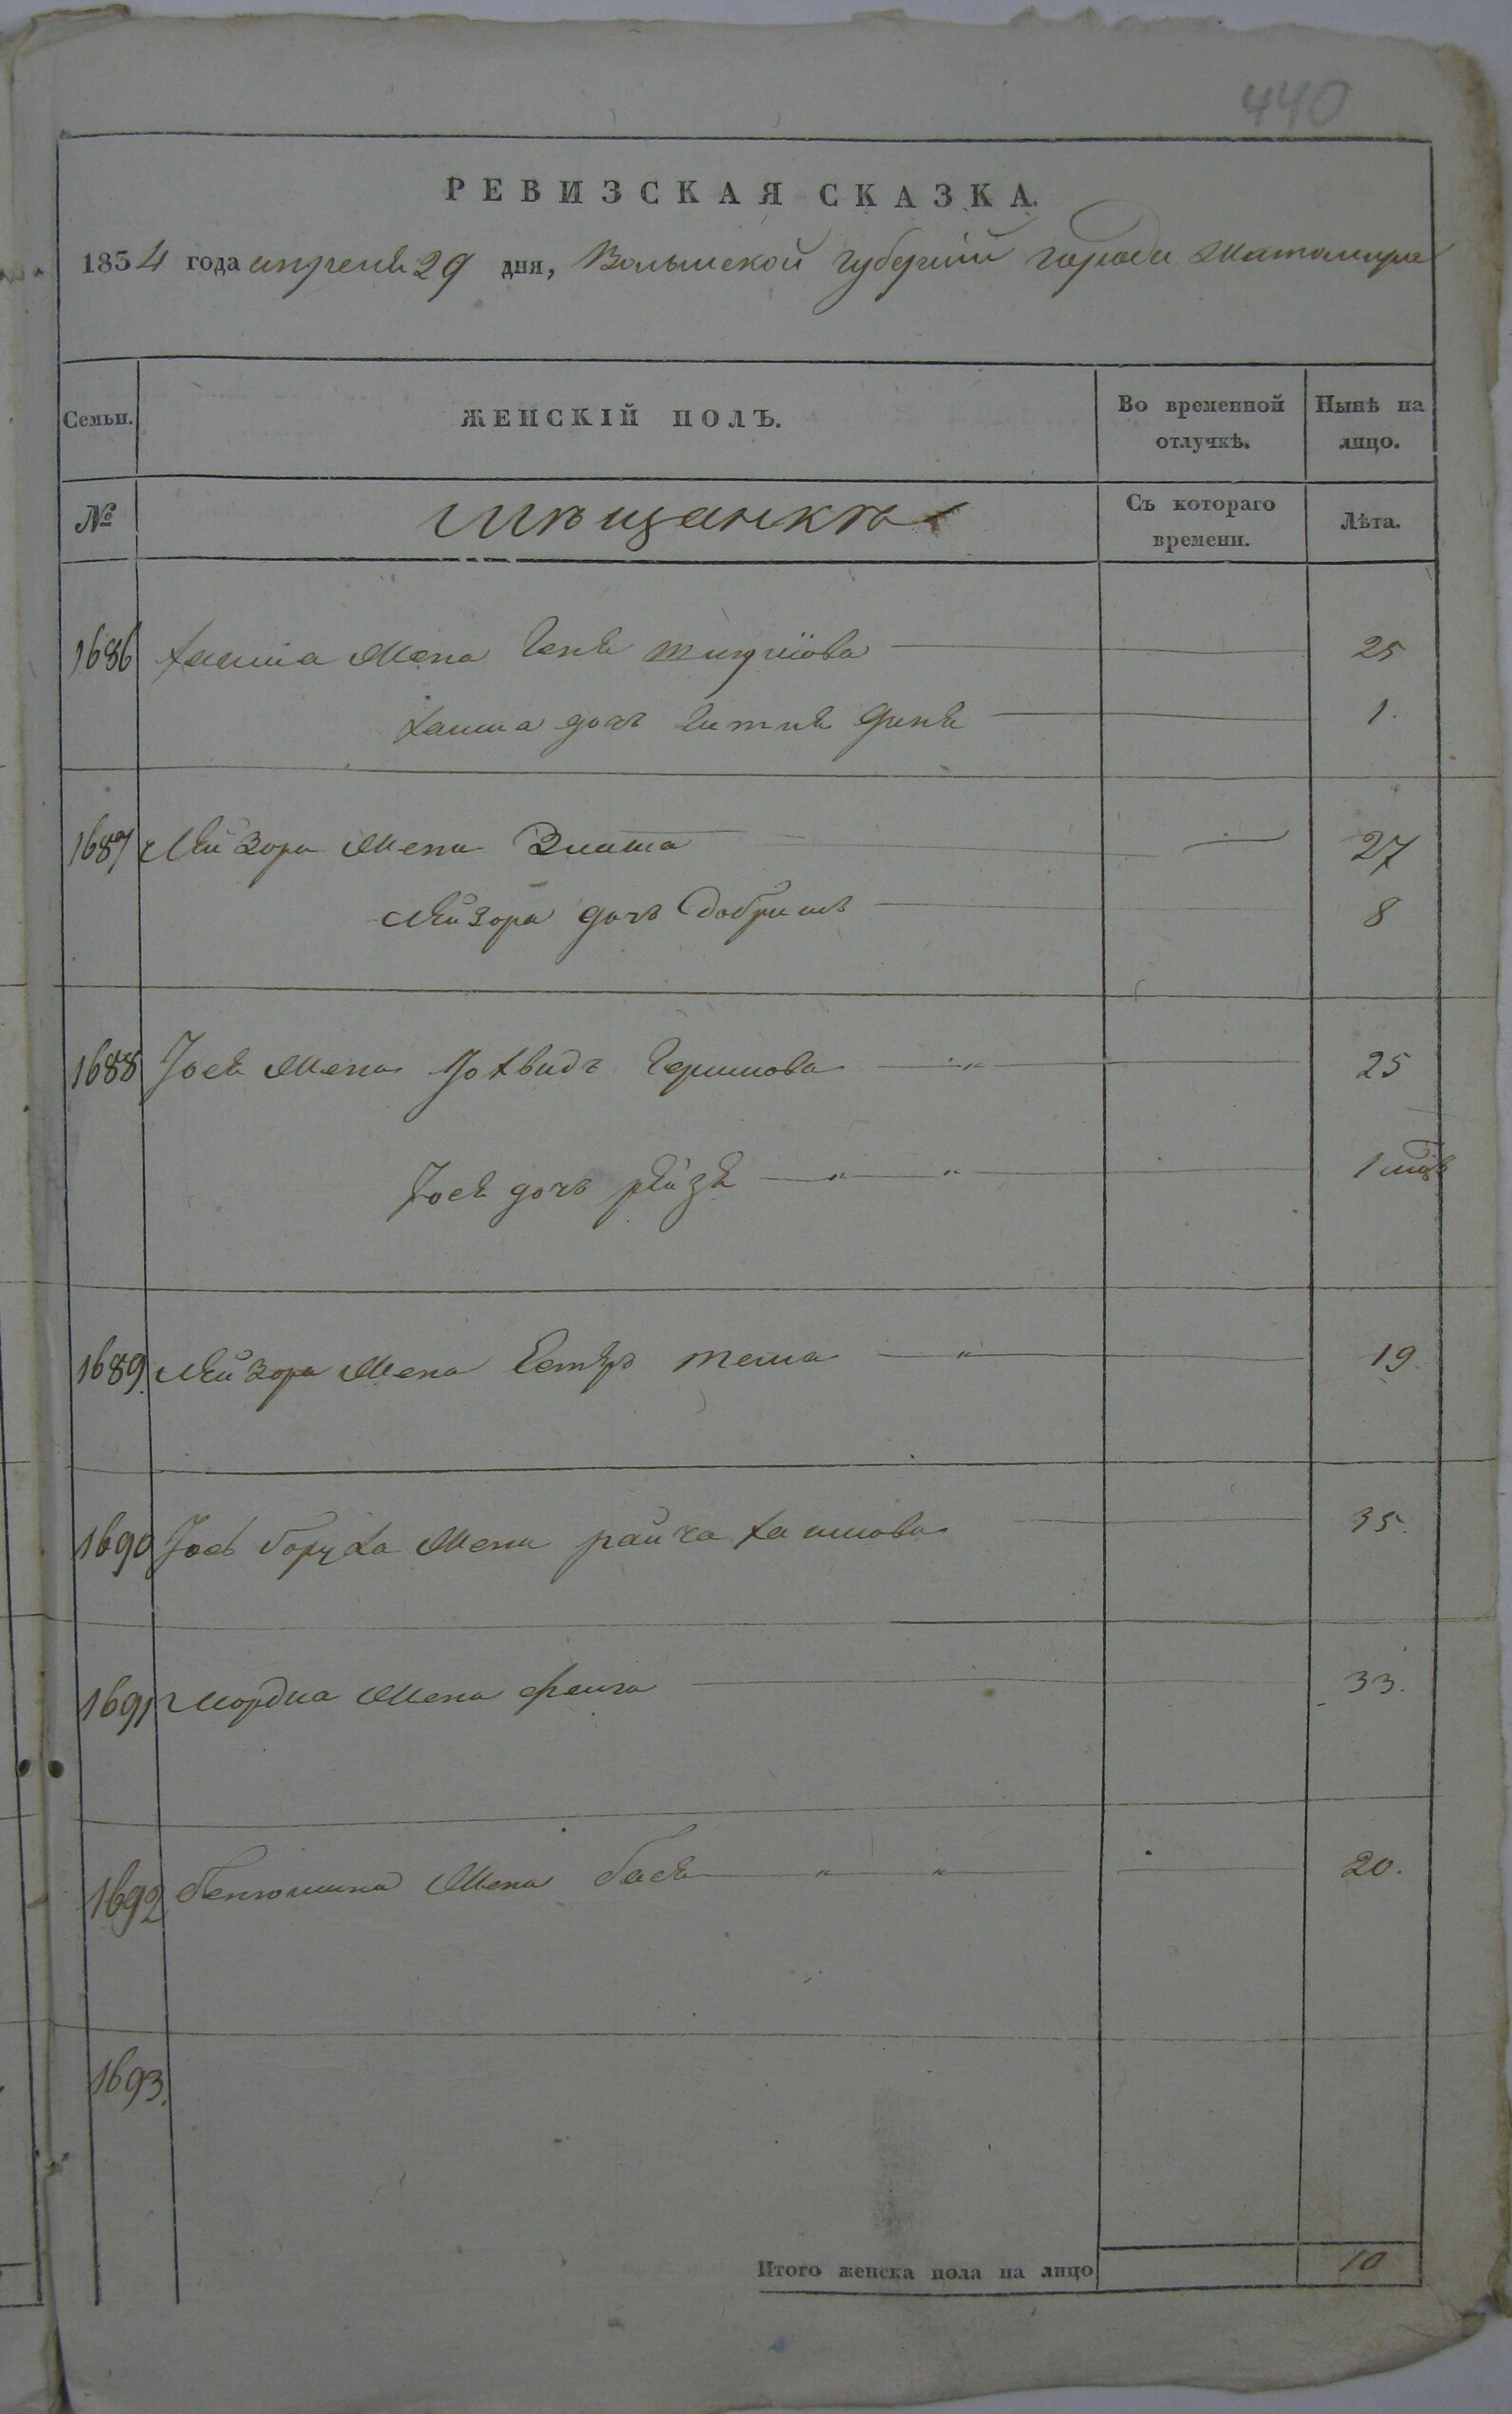 440
РЕВИЗСКАЯ СКАЗКА.
1834 года апреля 29 дня, Волынской губернiи города Житомира
Семьи. ЖЕНСКIЙ ПОЛЪ. Во временной отлучкѣ. Нынѣ на лицо.
№ Мѣщанкѣ Съ котораго времени. Лѣта.
1686 Хаима жена 25
Хаима дочь 1.
1687 Лейзора жена Злата 27
Лейзора дочь Добришъ 8
1688 Iося жена Iохвидъ Гершкова 25
Iося дочь рейзя 1 мѣц
1689. Лейзора жена Естеръ 19
1690 Iось боруха жена райча Хаимова 35.
1691 Мордка жена фейга 33.
1692 бенюмина жена бася 20.
1693.
Итого женска пола на лицо 10